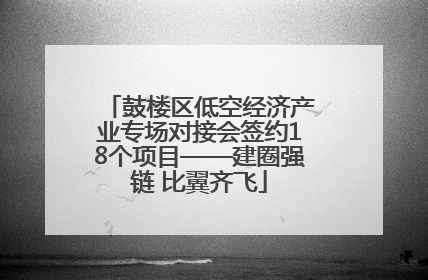 「鼓楼区低空经济产
业专场对接会签约1
8个项目——建圈强
链 比翼齐飞」